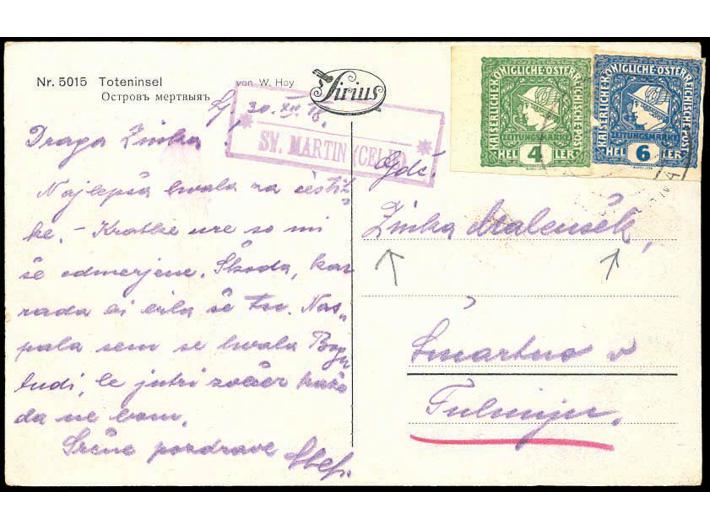 Nr. 5015 Toteninsel
von W. Hoy
Островъ мертвыяъ
Sirius
30. XII. 18.
SV. MARTIN (CELJE)
KAISERLICHE KÖNIGLICHE ÖSTERREICHISCHE POST
ZEITUNGSMARKE
HELLER 4
KAISERLICHE KÖNIGLICHE ÖSTERREICHISCHE POST
ZEITUNGSMARKE
HELLER 6
Draga Zinka
Najlepša hvala za čestit-
ke. - Kratke ure so mi
še odmerjene. Škoda, kar
rada bi bila še tu. Nas-
pala sem se hvala Bogu
tudi, le jutri zvečer
da ne bom.
Srčne pozdrave
Gdč.
Zinka Malenšek,
Šmartno v
Tuhinju.